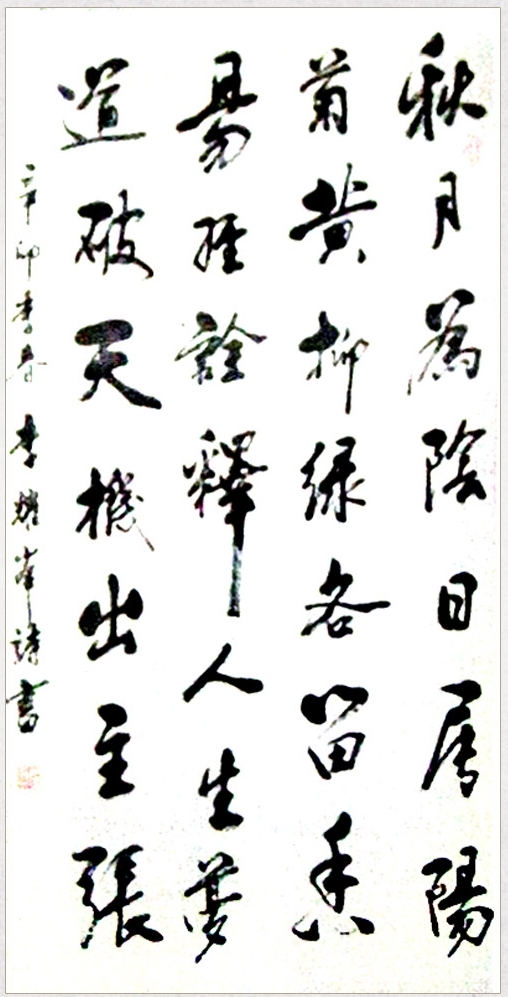 秋月為陰日屬陽
菊黄柳绿各留香
易經詮釋人生夢
道破天機出主張
辛卯季春李耀峯詩書